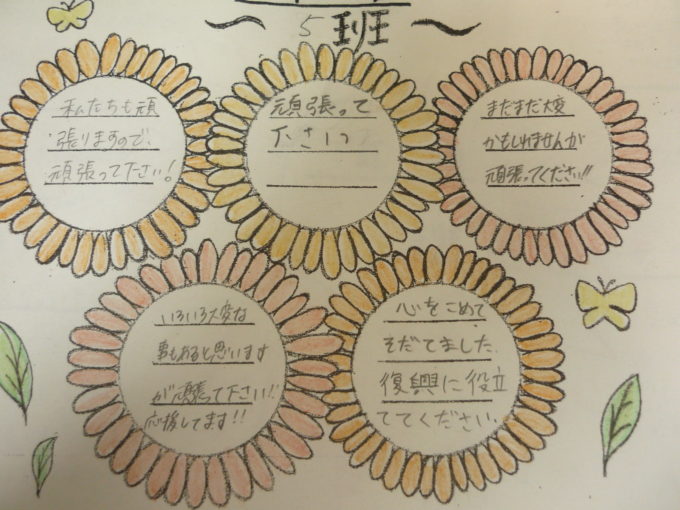 ～ 5 班 ～
私たちも頑
張りますので、
頑張って下さい!
頑張って
下さいっ
まだまだ大変
かもしれませんが
頑張ってください!!
いろいろ大変な
事もあると思います
が頑張って下さい!
応援してます!!
心をこめて
そだてました。
復興に役立
ててください。